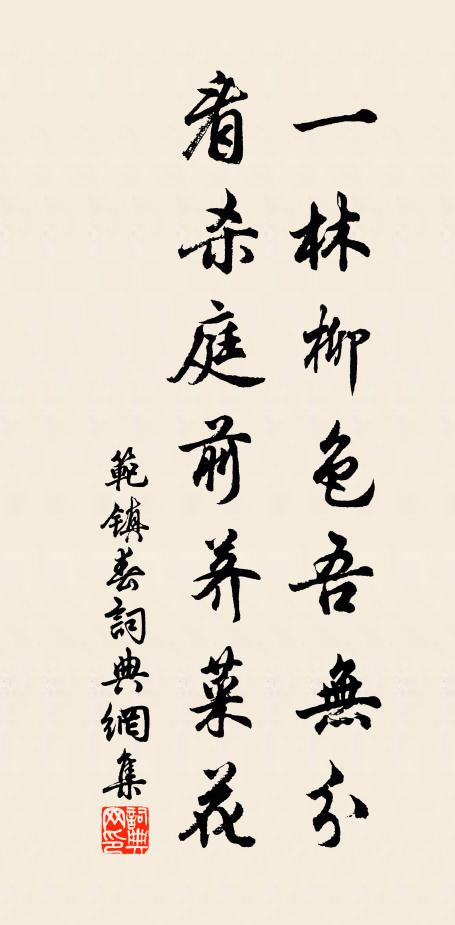 一林柳色吾無分
看杀庭前荠菜花
範鎮春詞典網集
詞典
网印